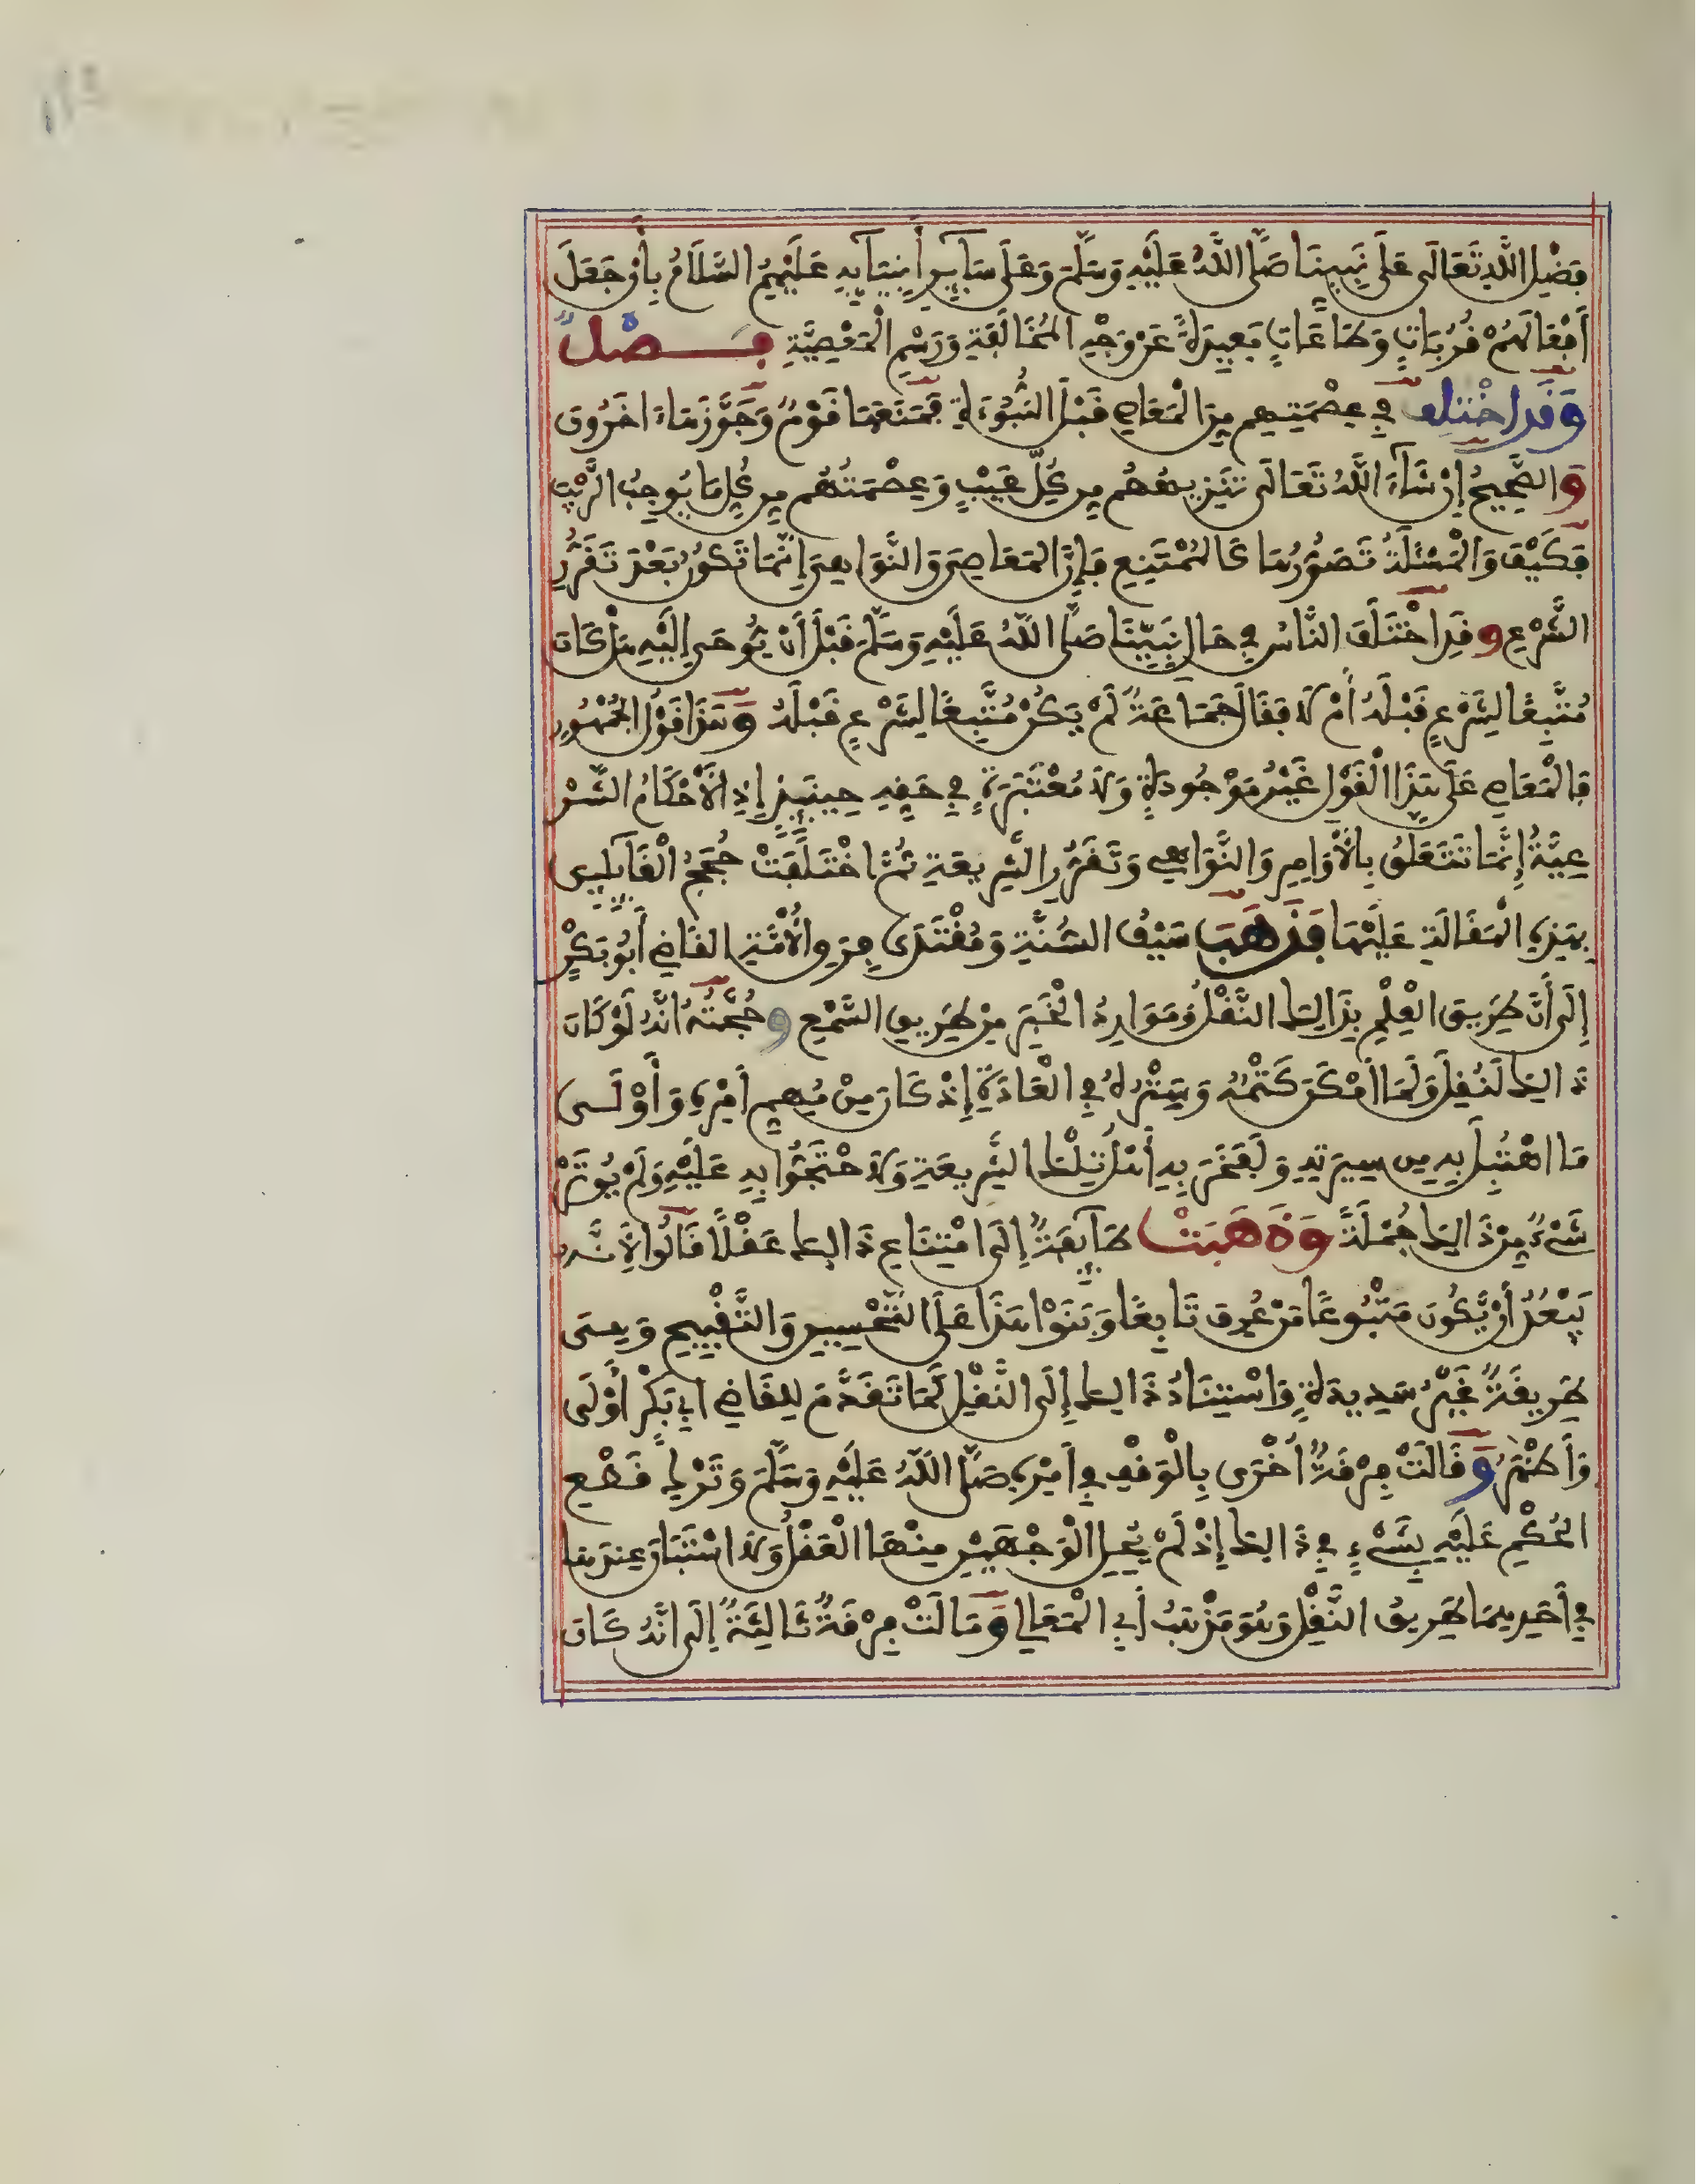 فَضْلِ اللَّهِ تَعَالَى عَلَى نَبِيِّنَا صَلَّى اللَّهُ عَلَيْهِ وَسَلَّمَ وَعَلَى سَآئِرِ أَنْبِيَآئِهِ عَلَيْهِمُ السَّلَامُ بِأَنْ جَعَلَ
أَفْعَالَهُمْ قُرُبَاتٍ وَطَاعَاتٍ بَعِيدَةً عَنْ وَجْهِ الْمُخَالَفَةِ وَرَسْمِ الْمَعْصِيَّةِ فَصْلٌ
وَقَدِ اخْتُلِفَ فِي عِصْمَتِهِم مِنَ الْمَعَاصِي قَبْلَ النُّبُوَّةِ فَمَنَعَهَا قَوْمٌ وَجَوَّزَهَا ءَاخَرُونَ
وَالصَّحِيحُ إِنْ شَآءَ اللَّهُ تَعَالَى تَنْزِيهُهُم مِن كُلِّ عَيْبٍ وَعِصْمَتُهُم مِن كُلِّ مَا يُوجِبُ الرَّيْبَ
فَكَيْفَ وَالْمَسْئَلَةُ تَصَوُّرُهَا كَالْمُمْتَنِعِ فَإِنَّ الْمَعَاصِيَ وَالنَّوَاهِيَ إِنَّمَا تَكُونُ بَعْدَ تَقَرُّرِ
الشَّرْعِ وَقَدِ اخْتَلَفَ النَّاسُ فِي حَالِ نَبِيِّنَا صَلَّى اللَّهُ عَلَيْهِ وَسَلَّمَ قَبْلَ أَنْ يُّوحَى إِلَيْهِ هَلْ كَانَ
مُتَّبِعًا لِشَرْعٍ قَبْلَهُ أَمْ لَا فَقَالَ جَمَاعَةٌ لَمْ يَكُنْ مُتَّبِعًا لِشَرْعٍ قَبْلَهُ وَهَذَا قَوْلُ الْجُمْهُورِ
فَالْمَعَاصِي عَلَى هَذَا الْقَوْلِ غَيْرُ مَوْجُودَةٍ وَلَا مُعْتَبَرَةٍ فِي حَقِّهِ حِينَئِذٍ إِذِ الْأَحْكَامُ الشَّرْ
عِيَّةُ إِنَّمَا تَتَعَلَّقُ بِالْأَوَامِرِ وَالنَّوَاهِي وَتَقَرُّرِ الشَّرِيعَةِ ثُمَّ اخْتَلَفَتْ حُجَجُ الْقَآئِلِينَ
بِهَذِهِ الْمَقَالَةِ عَلَيْهَا فَذَهَبَ سَيْفُ السُّنَّةِ وَمُقْتَدَى فِرَقِ الْأُمَّةِ الْقَاضِي أَبُو بَكْرٍ
إِلَى أَنَّ طَرِيقَ الْعِلْمِ بِذَالِكَ النَّقْلُ وَمَوَارِدُ الْخَبَرِ مِنْ طَرِيقِ السَّمْعِ وَحُجَّتُهُ أَنَّهُ لَوْ كَانَ
ذَالِكَ لَنُقِلَ وَلَمَا أَمْكَنَ كَتْمُهُ وَسَتْرُهُ فِي الْعَادَةِ إِذْ كَانَ مِنْ مُهِمِّ أَمْرِهِ وَأَوْلَى
مَا اهْتُبِلَ بِهِ مِن سِيرَتِهِ وَلَفَخَرَ بِهِ أَهْلُ تِلْكَ الشَّرِيعَةِ وَلَاحْتَجُّوا بِهِ عَلَيْهِ وَلَمْ يُوثَرْ
شَيْءٌ مِنْ ذَالِكَ جُمْلَةً وَذَهَبَتْ طَآئِفَةٌ إِلَى امْتِنَاعِ ذَالِكَ عَقْلًا قَالُوا لِأَنَّهُ
يَبْعُدُ أَنْ يَّكُونَ مَتْبُوعًا مَنْ عُرِفَ تَابِعًا وَبَنَوْا هَذَا عَلَى التَّحْسِينِ وَالتَّقْبِيحِ وَهِيَ
طَرِيقَةٌ غَيْرُ سَدِيدَةٍ وَاسْتِنَادُ ذَالِكَ إِلَى النَّقْلِ كَمَا تَقَدَّمَ لِلْقَاضِي أَبِي بَكْرٍ أَوْلَى
وَأَظْهَرُ وَقَالَتْ فِرْقَةٌ أُخْرَى بِالْوَقْفِ فِي أَمْرِهِ صَلَّى اللَّهُ عَلَيْهِ وَسَلَّمَ وَتَرْكِ قَطْعِ
الْحُكْمِ عَلَيْهِ بِشَيْءٍ فِي ذَالِكَ إِذْ لَمْ يُحِلِ الْوَجْهَيْنِ مِنْهَا الْعَقْلُ وَلَا اسْتَبَانَ عِنْدَهَا
فِي أَحَدِهِمَا طَرِيقُ النَّقْلِ وَهُوَ مَذْهَبُ أَبِي الْمَعَالِي وَمَالَتْ فِرْقَةٌ ثَالِثَةٌ إِلَى أَنَّهُ كَانَ